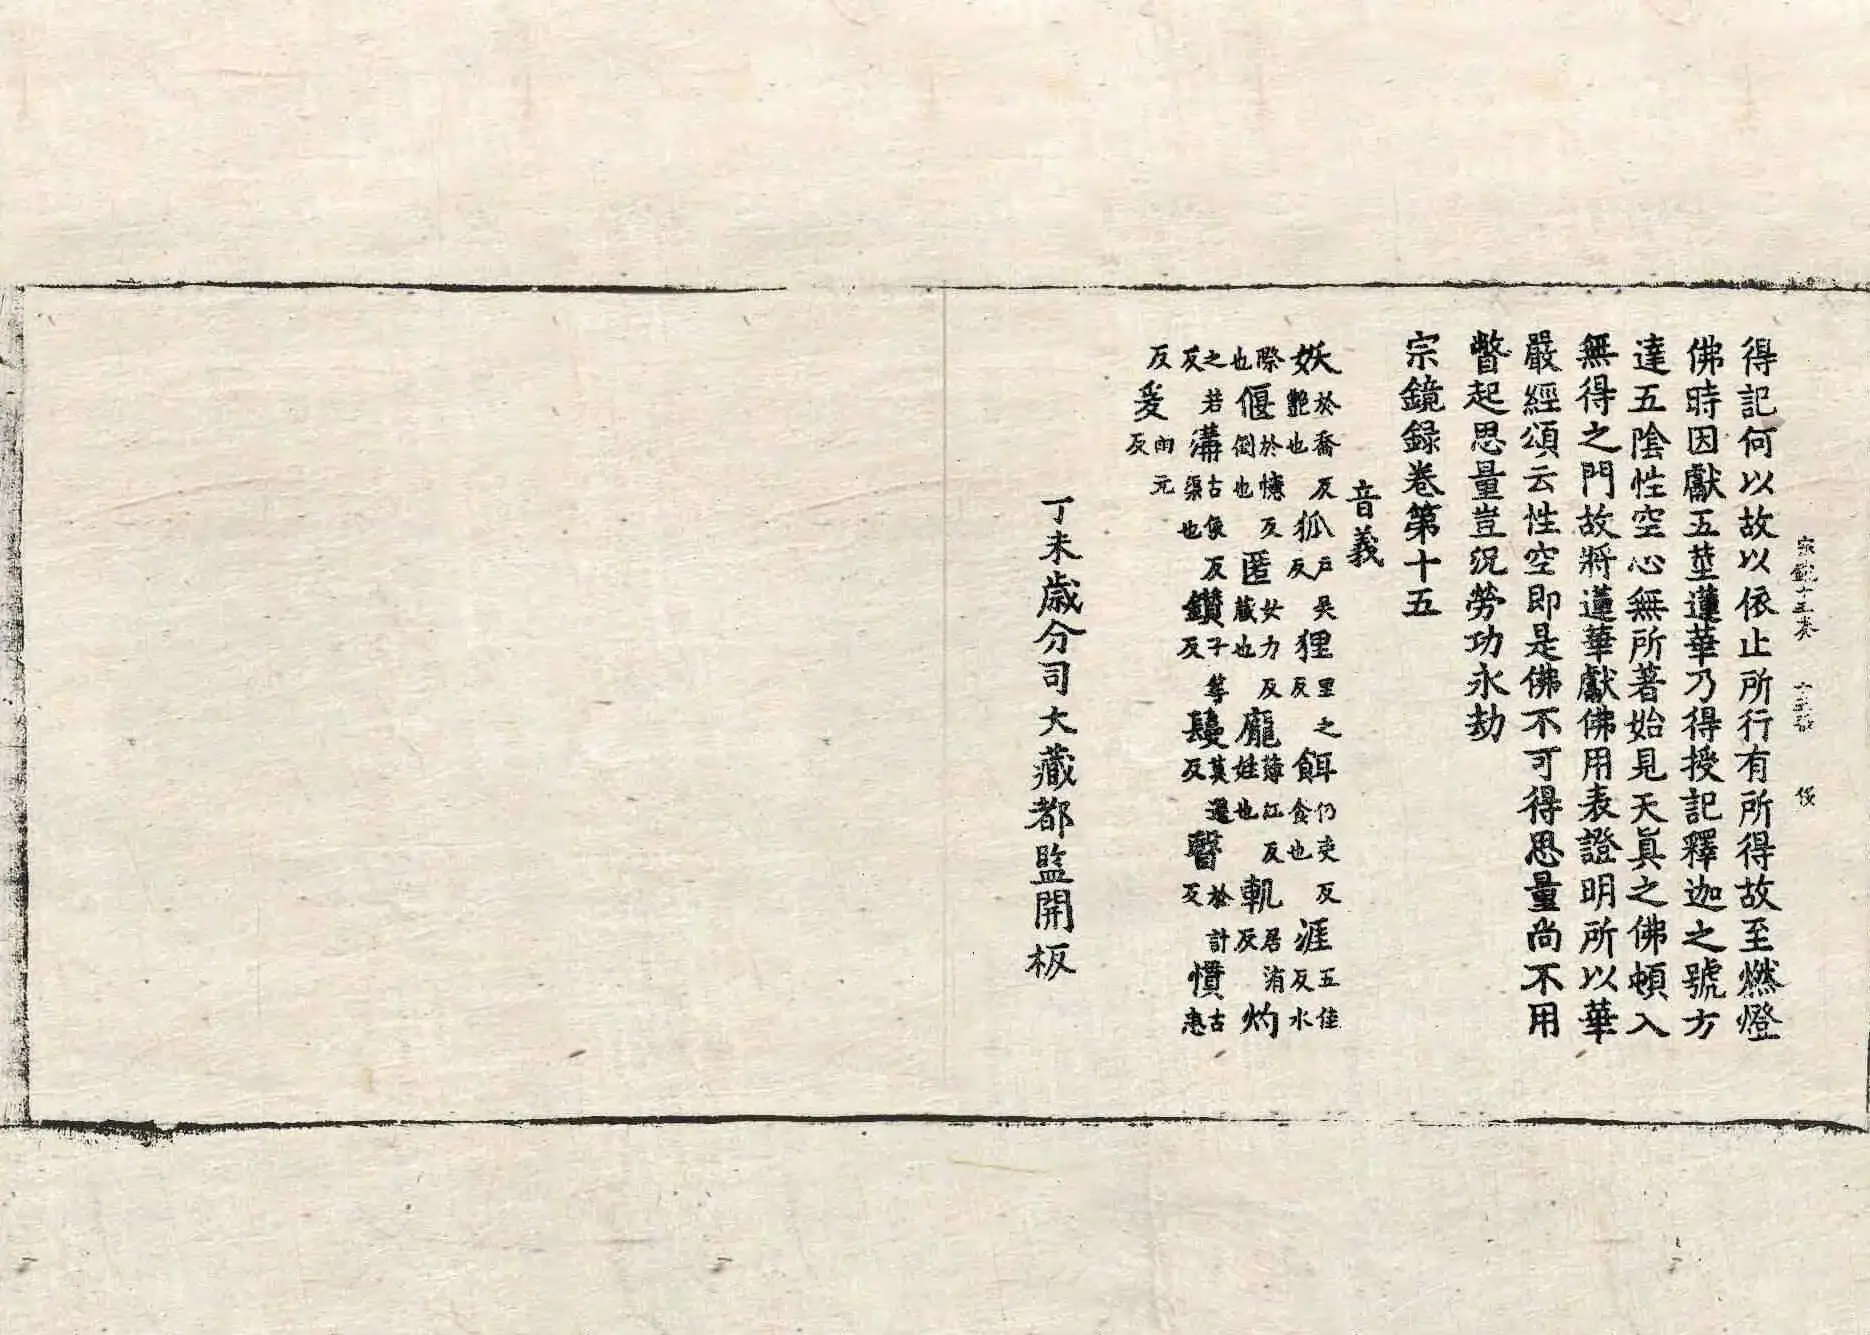 宗鏡十五卷 十五張 俊
得記何以故以依止所行有所得故至燃燈
佛時因獻五莖蓮華乃得授記釋迦之號方
達五陰性空心無所著始見天真之佛頓入
無得之門故將蓮華獻佛用表證明所以華
嚴經頌云性空即是佛不可得思量尚不用
瞥起思量豈況勞功永劫
宗鏡録卷第十五
音義
妖於喬反艶也狐戶吳反狸里之反餌仍吏反食也涯五佳反水
際也偃於幰反倒也匿女力反藏也龐薄江反姓也軌居洧反灼
之若反溝古侯反渠也鑚子筭反鬘莫還反瞖於計反慣古患
反爰雨元反
丁未歳分司大藏都監開板